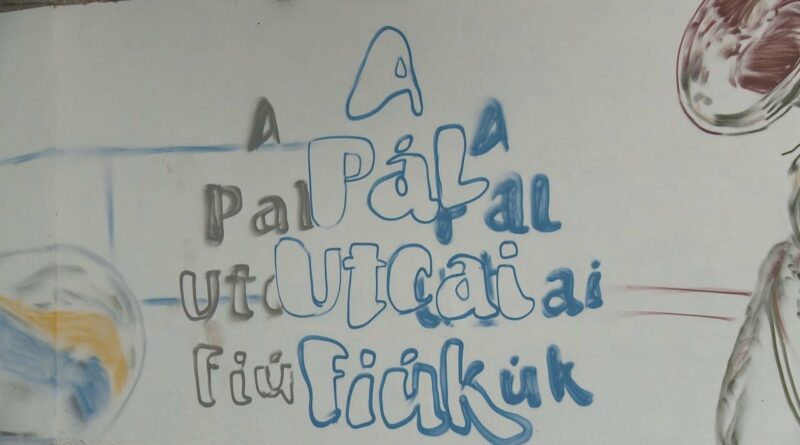 A
A A
Pál
Pal Pál
Utcai
Utc ai
Fiúk
Fiú úk